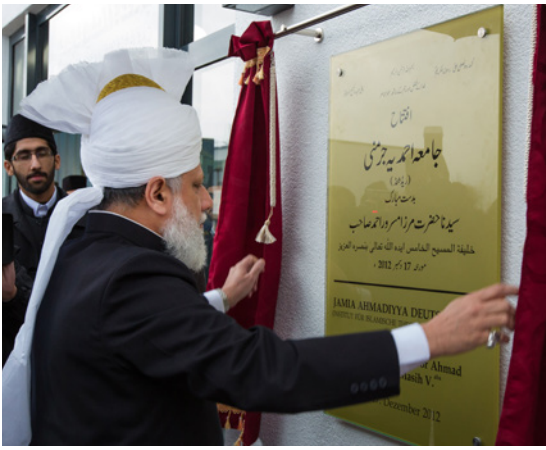 افتتاح
جامعہ احمدیہ جرمنی
بدست مبارک
سیدنا حضرت مرزا مسرور احمد صاحب
خلیفة المسیح الخامس ایدہ اللہ تعالی بنصرہ العزیز
17 دسمبر 2012ء
JAMIA AHMADIYYA DEUT
INSTITUT FÜR ISLAMISCHE
Ahmad
asih V.
Dezember 2012